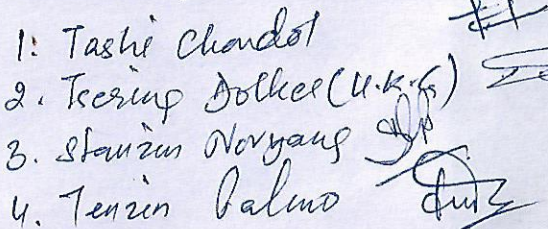 1. Tashi Chondol
2. Tsering Dolker (U.K.G)
3. Stanzin Noryang
4. Tenzin Palmo